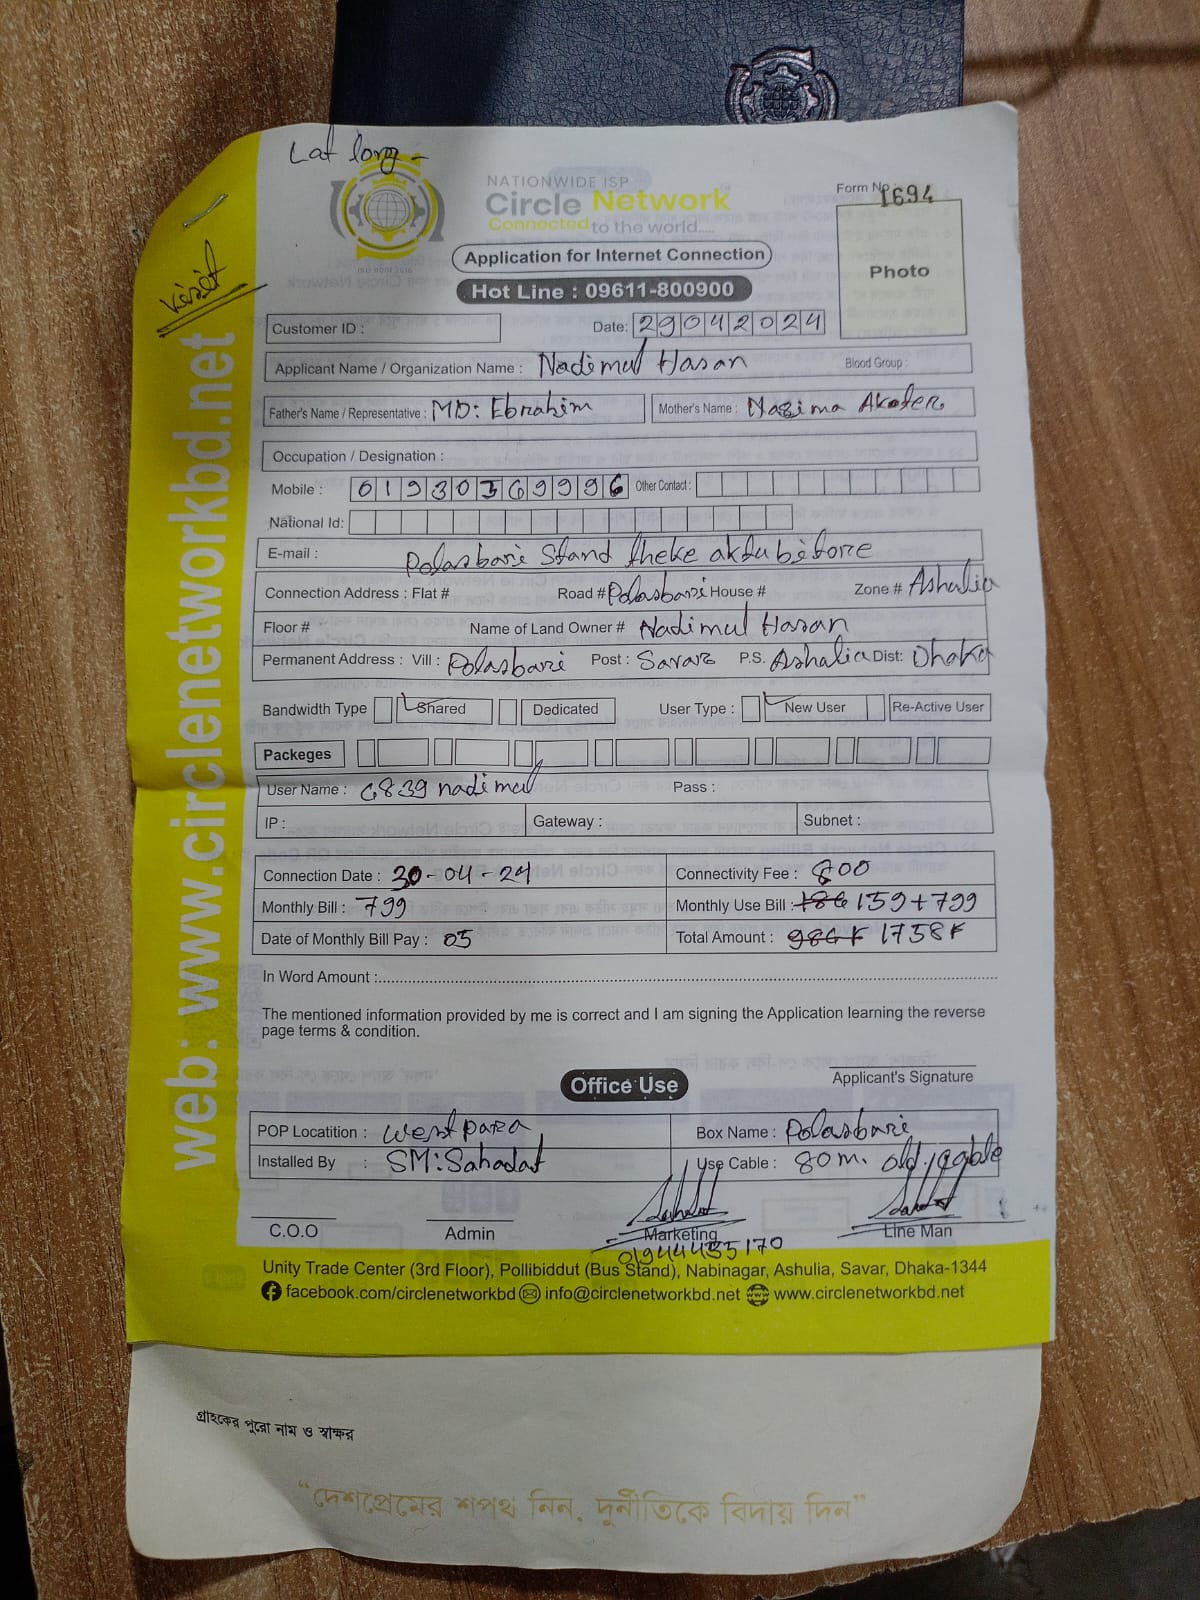 Lat long -
NATIONWIDE ISP
Circle Network
Connected to the world.....
Form No 1694
Application for Internet Connection
Photo
Hot Line : 09611-800900
ISO 9001 2015
web: www.circlenetworkbd.net
Customer ID :
Date: 29042024
Applicant Name / Organization Name : Nadimul Hasan Blood Group :
Father's Name / Representative : MD: Ebrahim Mother's Name : Nazima Akster
Occupation / Designation :
Mobile : 01930369996 Other Contact :
National Id:
E-mail : Polasbari Stand theke aktu bitore
Connection Address : Flat # Road # Polasbari House # Zone # Ashulia
Floor # Name of Land Owner # Nadimul Hasan
Permanent Address : Vill : Polasbari Post : Savar P.S. Ashalia Dist: Dhaka
Bandwidth Type Shared Dedicated User Type : New User Re-Active User
Packeges
User Name : c839nadimul Pass :
IP : Gateway : Subnet :
Connection Date : 30-04-24 Connectivity Fee : 800
Monthly Bill : 799 Monthly Use Bill : 186 159+799
Date of Monthly Bill Pay : 05 Total Amount : 986 1758
In Word Amount :
The mentioned information provided by me is correct and I am signing the Application learning the reverse
page terms & condition.
Applicant's Signature
Office Use
POP Locatition : West para Box Name : Polasbari
Installed By : SM: Sahadat Use Cable : 80 m. old
C.O.O Admin Marketing Line Man
01944435170
Unity Trade Center (3rd Floor), Pollibiddut (Bus Stand), Nabinagar, Ashulia, Savar, Dhaka-1344
facebook.com/circlenetworkbd info@circlenetworkbd.net www.circlenetworkbd.net
গ্রাহকের পুরো নাম ও স্বাক্ষর
“দেশপ্রেমের শপথ নিন, দুর্নীতিকে বিদায় দিন”